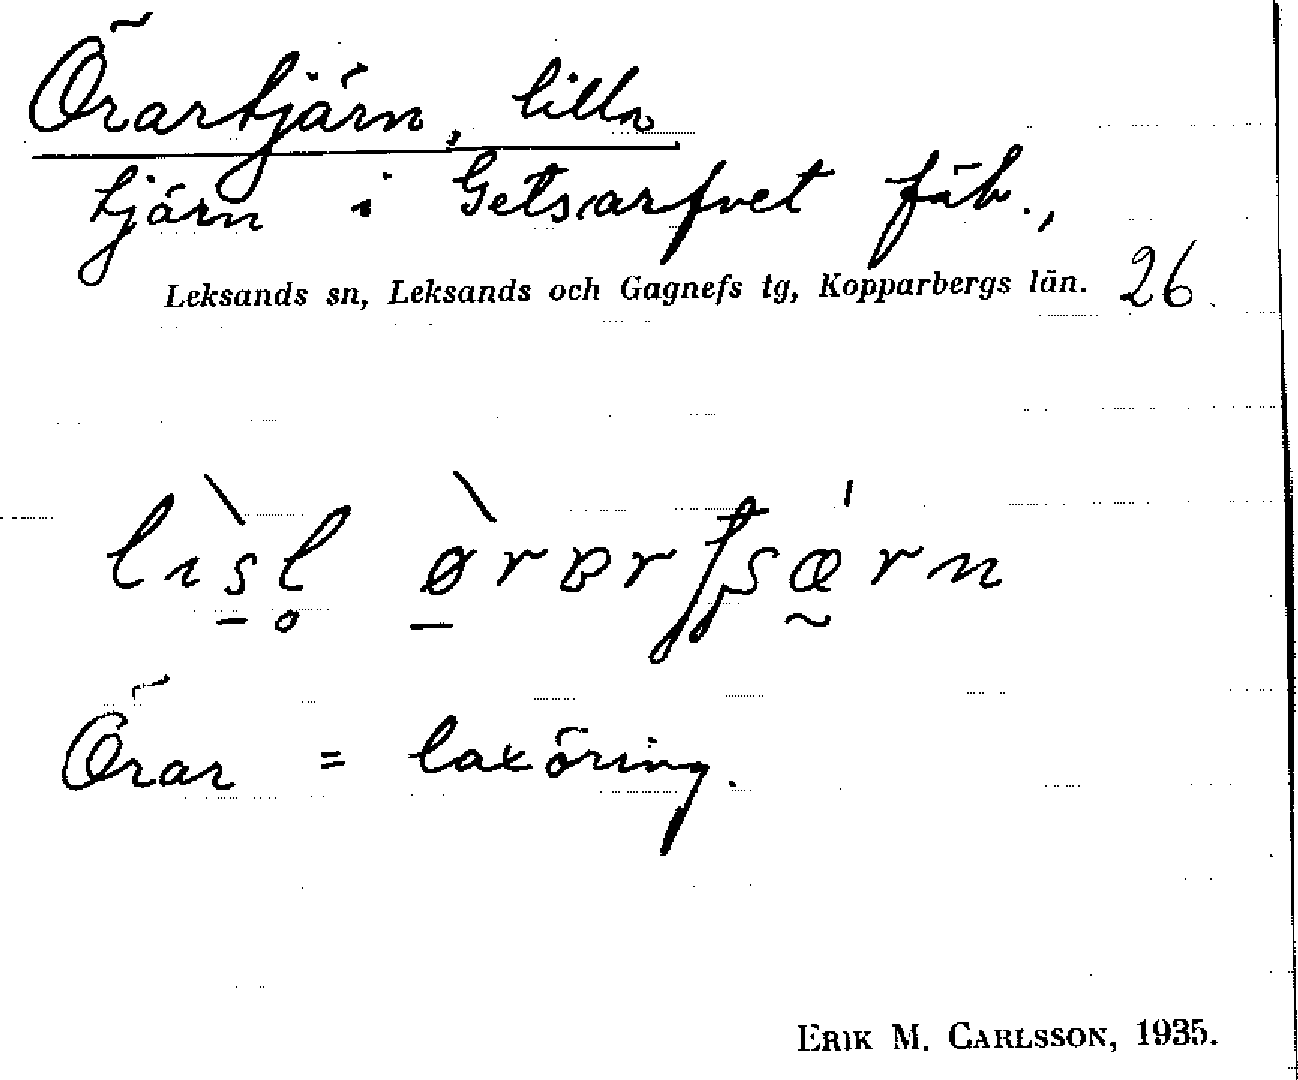 Örartjärn, lilla
tjärn i Getsarfvet fäb.,
Leksands sn, Leksands och Gagnefs tg, Kopparbergs län. 26.
Örar = laxöring.
ERIK M. CARLSSON, 1935.